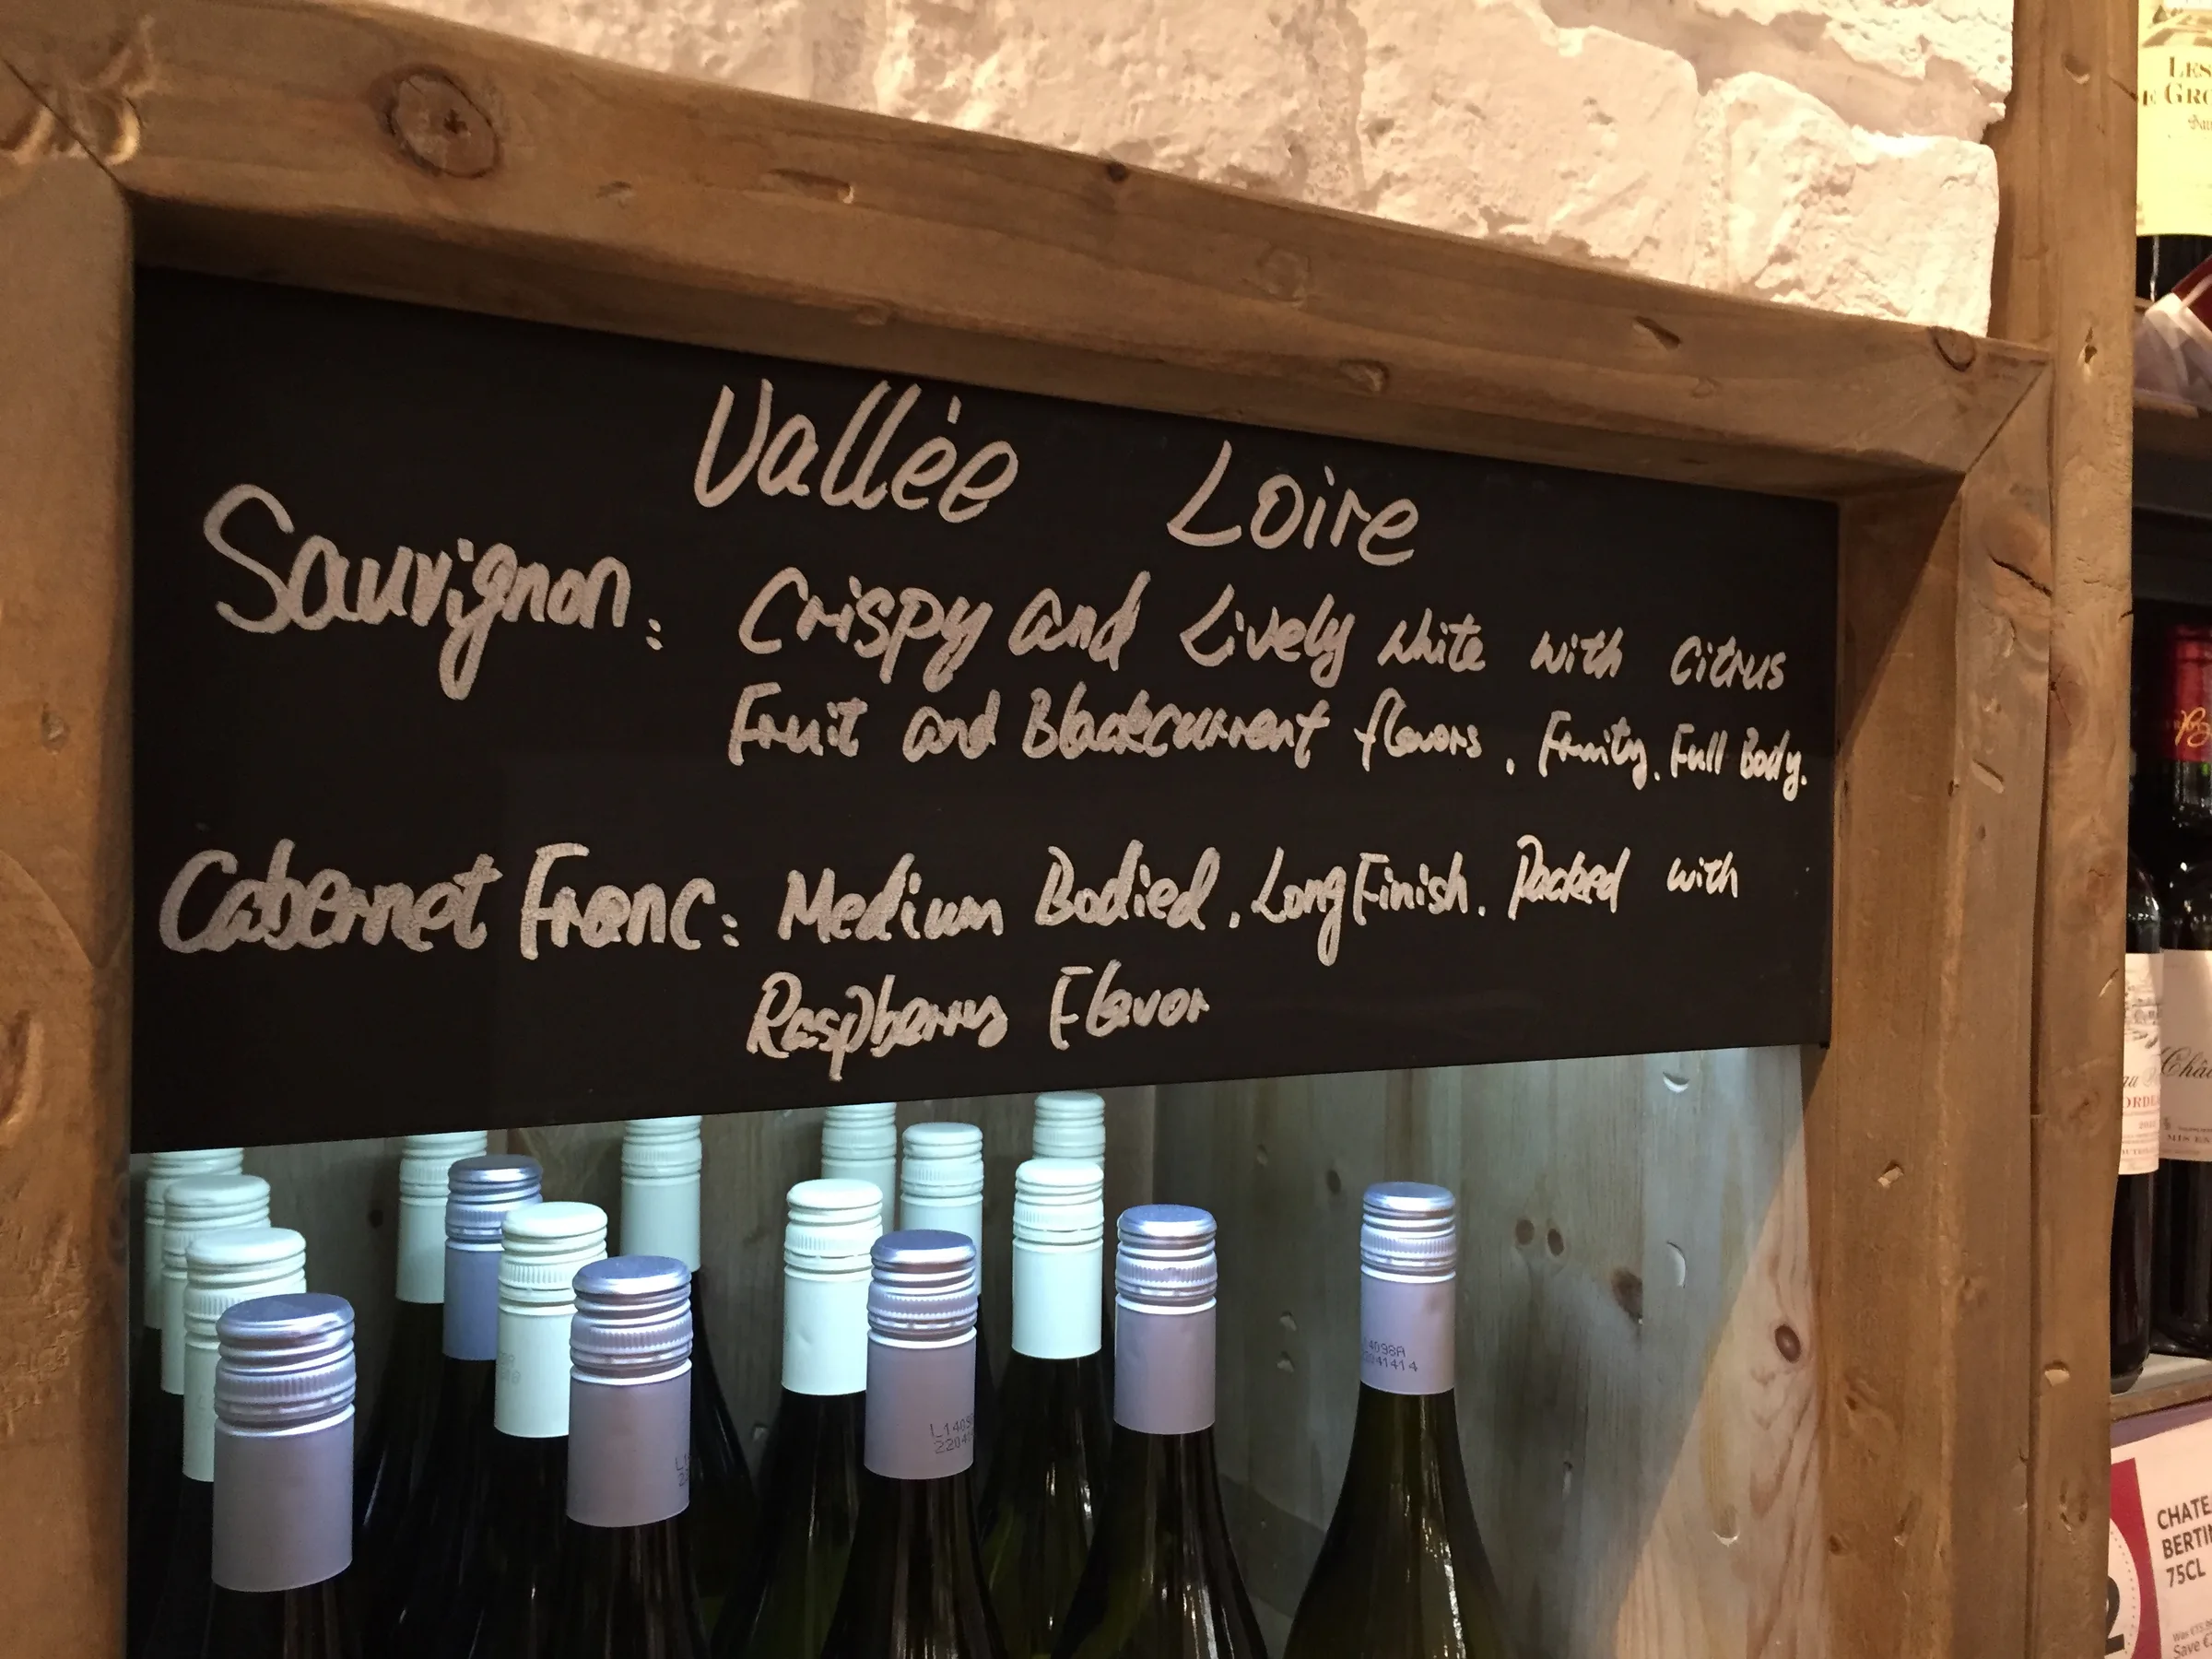 Vallée Loire
Sauvignon: Crispy and Lively white with Citrus
Fruit and Blackcurrent flavors, Fruity, Full Body.
Cabernet Franc: Medium Bodied, Long Finish. Packed with
Raspberry Flavor
L14098A
22041414
LES
GRO
CHATE
BERTI
75CL
Save €